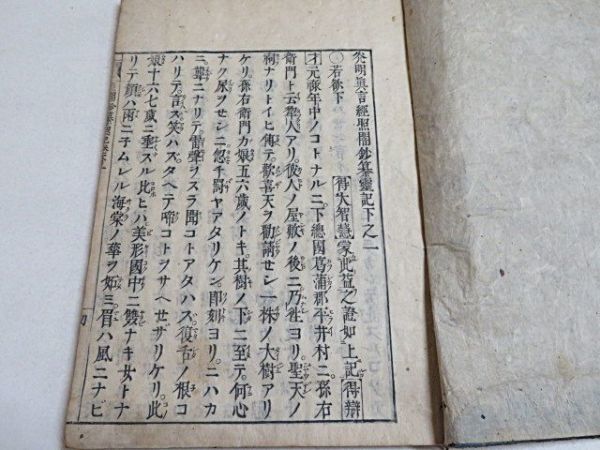 光明眞言經照闇鈔纂靈記下之一
得大智慧蒙此益之證如上記得辯
若餘下
才元祿年中ノコトナルニ下總國葛蒲郡平井村ニ孫右
衛門ト云フ人アリ彼人ノ屋敷ノ後ニ乃往ヨリ聖天ノ
祠ナリトイヒ傳テ歡喜天ヲ勸請セシ一株ノ大樹アリ
ケリ孫右衛門カ娘五六歳ノトキ其樹ノ下ニ至テ何心
ナク尿ヲセシニ忽チ罸ヤアタリケン即刻ヨリニハカ
ニ聾ニナリテ雷聲ヲスラ聞コトアタハス復舌ノ根コ
ハリテ言ス笑ハスタヘテ啼コトヲサヘセサリケリ此
娘十六七歳ニ垂スル比ヒハ美形國中ニ雙ナキ女トナ
リテ顔ハ雨ニチムレル海棠ノ華ヲ妬ミ眉ハ風ニナビ